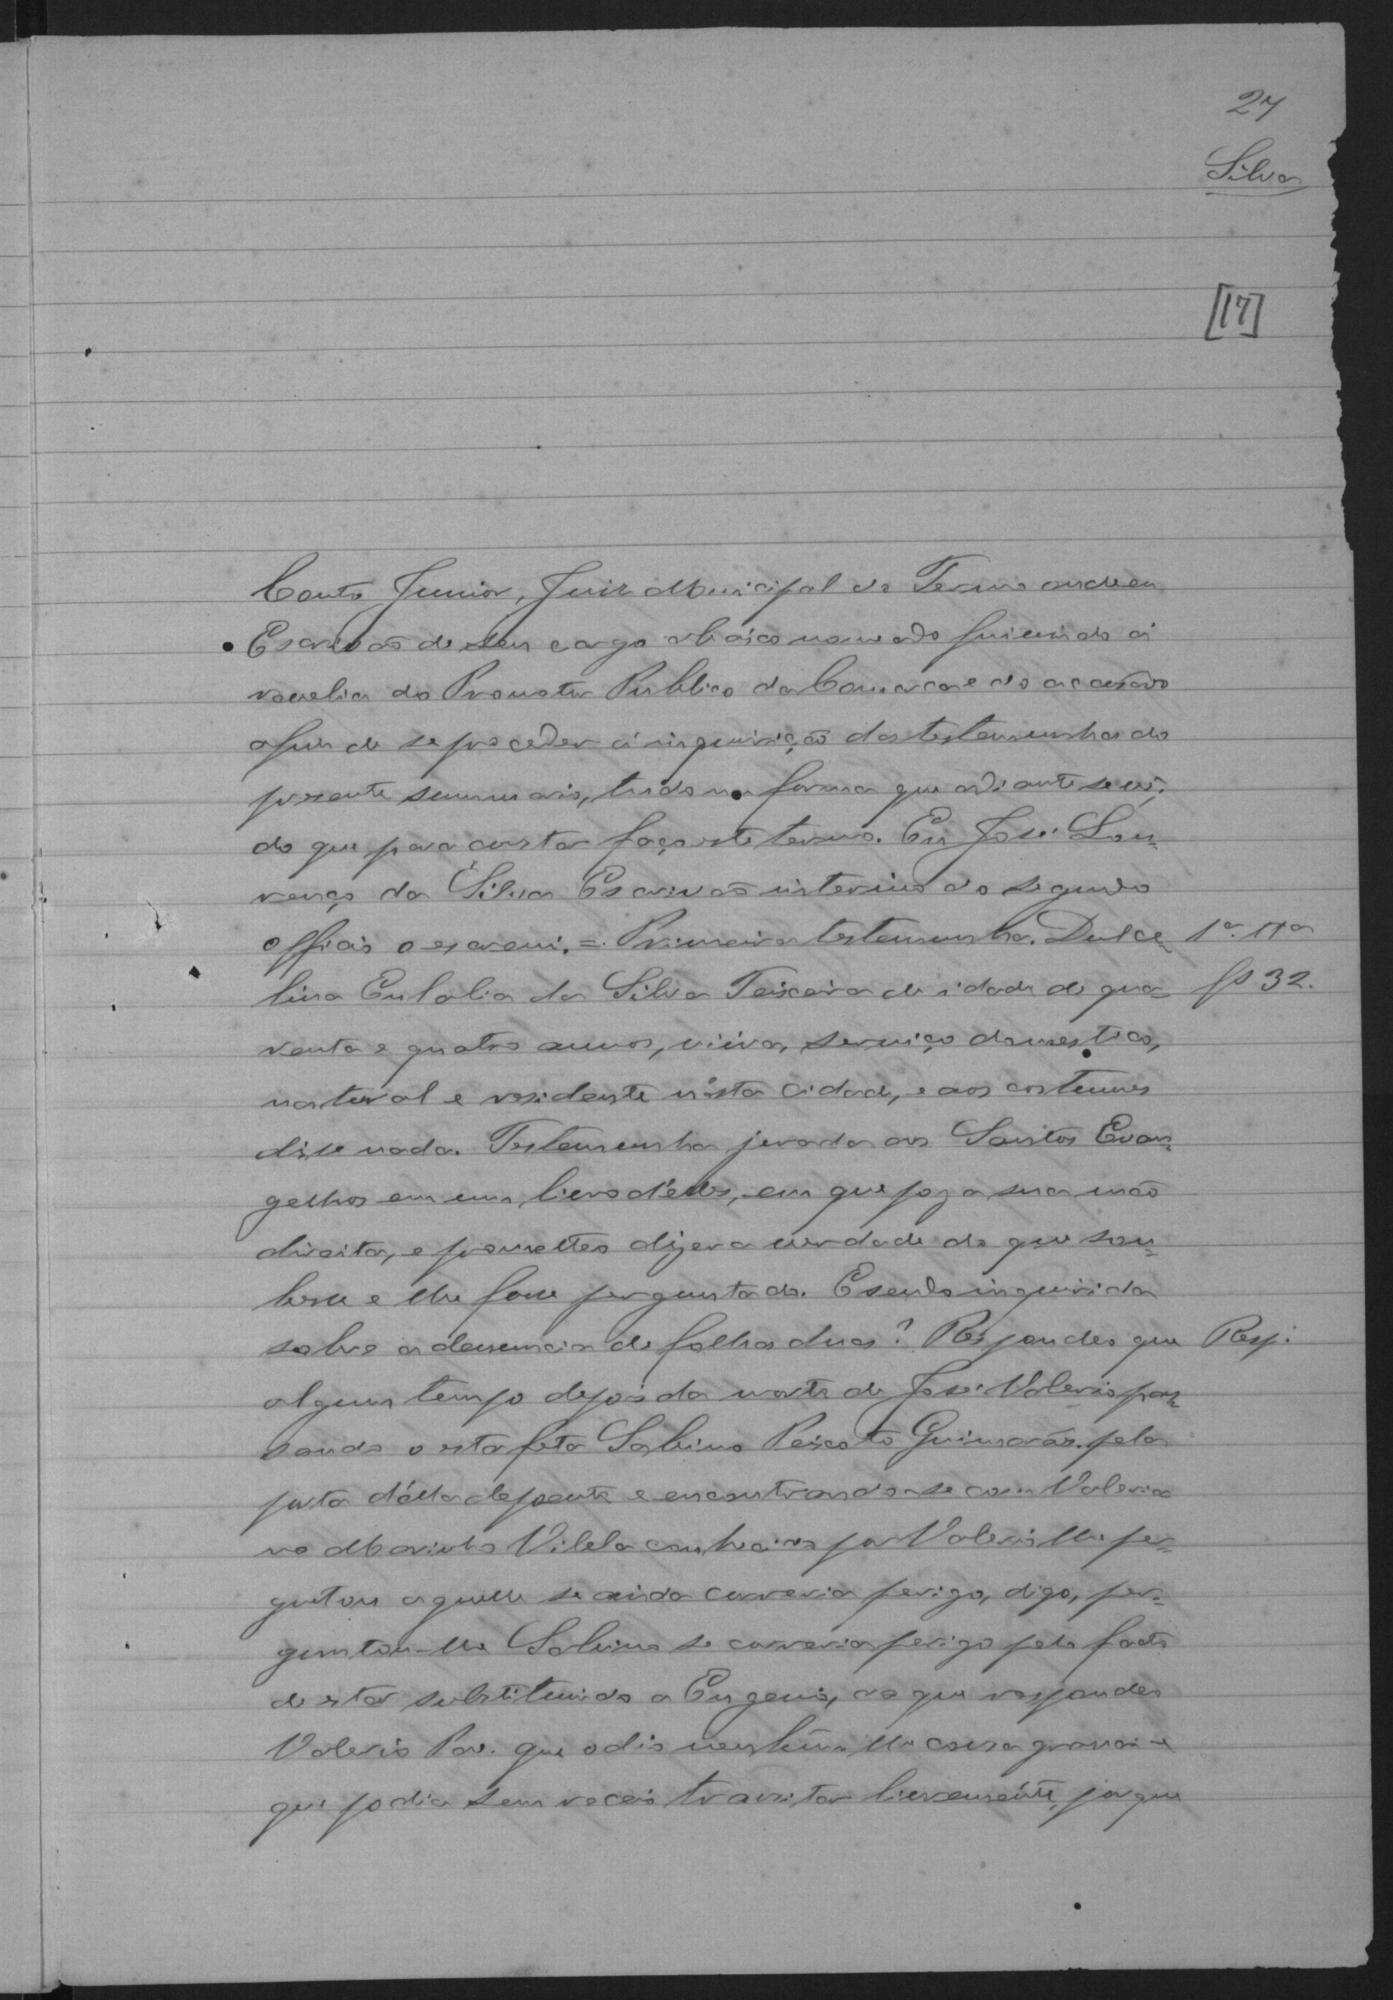 27
Silva
[17]
Couto Junior, Juiz Municipal do Termo onde eu
Escrivão de seu cargo abaixo nomeado fui vindo á
revelia do Promotor Publico da Comarca e do accusado
afim de se proceder á inquirição das testemunhas do
presente summario, tudo na forma que adiante se vê;
do que para constar faço este termo. Eu José Lou=
renço da Silva Escrivão interino do segundo
officio o escrevi. = Primeira testemunha. Dulce= 1ª. Tª
lina Eulalia da Silva Teixeira de idade de qua= fs 32.
renta e quatro annos, viuva, serviço domestico,
natural e residente nésta cidade, e aos costumes
disse nada. Testemunha jurada aos Santos Evan=
gelhos em um livro d'elles, em que poz a sua mão
direita, e prometteo dizer a verdade do que sou=
besse e lhe fosse perguntado. E sendo inquirida
sobre a denuncia de folhas duas? Respondeo que Resp.
algum tempo depois da morte de José Valerio pas=
sando o estafeta Sabino Peixoto Guimarães pela
porta d'ella depoente e encontrando-se com Valeria
no Marinho Vilela conhecido por Valerio lhe per=
guntou aquelle se ainda correria perigo, digo, per=
guntou-lhe Sabino se correria perigo pelo facto
de estar substituindo a Eugenio, ao que respondeo
Valerio que odio nenhum lhe consagrava e
que podia sem receio transitar livremente, porque